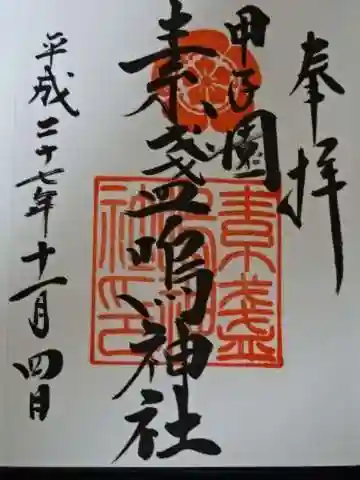 奉拝
甲子園
素盞嗚神社
平成二十七年十一月四日
素盞